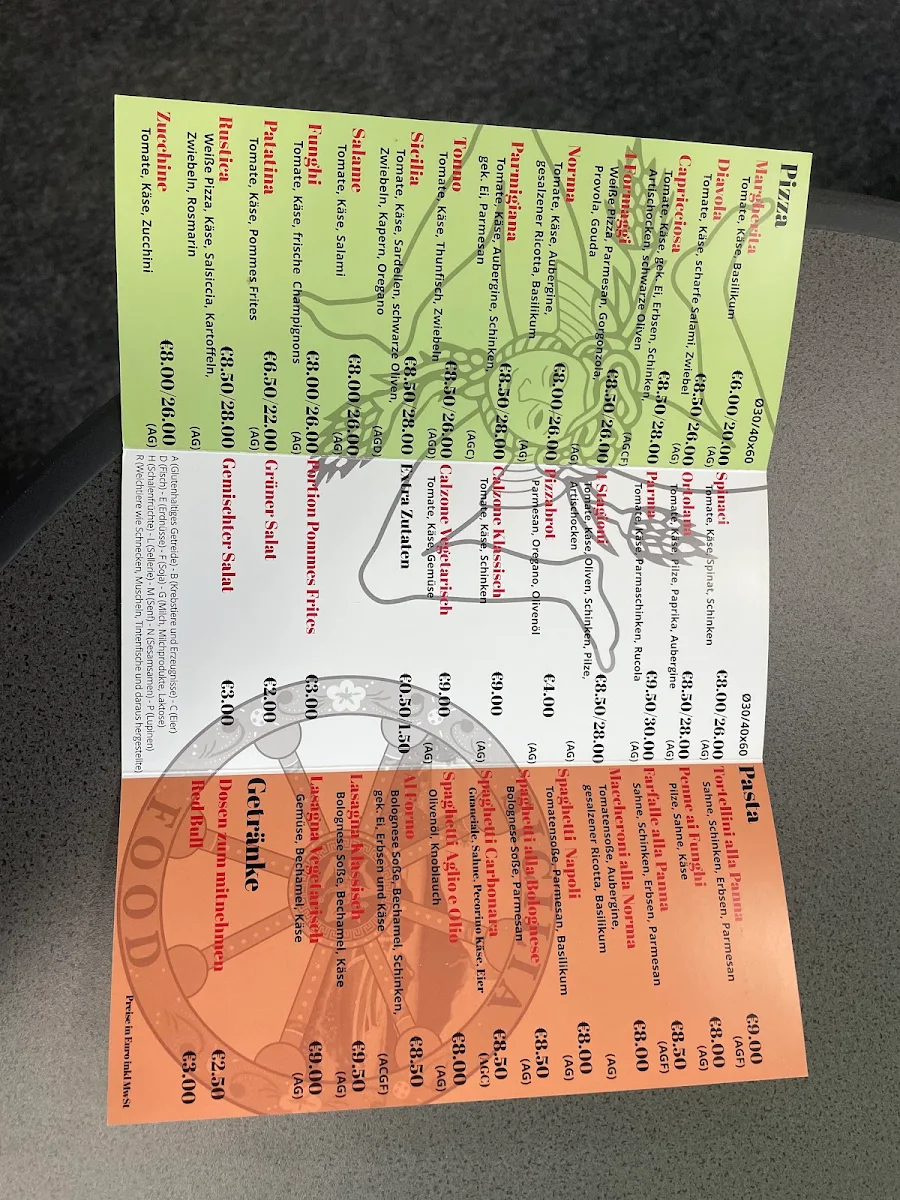 Pizza
Ø30/40x60
Margherita €6.00/20.00
Tomate, Käse, Basilikum (AG)
Diavola €8.50/26.00
Tomate, Käse, scharfe Salami, Zwiebel (AG)
Capricciosa €8.50/28.00
Tomate, Käse, gek. Ei, Erbsen, Schinken,
Artischocken, schwarze Oliven (AGCF)
4 Formaggi €8.50/26.00
Weiße Pizza, Parmesan, Gorgonzola,
Provola, Gouda (AG)
Norma €8.00/26.00
Tomate, Käse, Aubergine,
gesalzener Ricotta, Basilikum (AG)
Parmigiana €8.50/28.00
Tomate, Käse, Aubergine, Schinken,
gek. Ei, Parmesan (AGC)
Tonno €8.50/26.00
Tomate, Käse, Thunfisch, Zwiebeln (AGD)
Sicilia €8.50/28.00
Tomate, Käse, Sardellen, schwarze Oliven,
Zwiebeln, Kapern, Oregano (AGD)
Salame €8.00/26.00
Tomate, Käse, Salami (AG)
Funghi €8.00/26.00
Tomate, Käse, frische Champignons (AG)
Patatina €6.50/22.00
Tomate, Käse, Pommes Frites (AG)
Rustica €8.50/28.00
Weiße Pizza, Käse, Salsiccia, Kartoffeln,
Zwiebeln, Rosmarin (AG)
Zucchine €8.00/26.00
Tomate, Käse, Zucchini (AG)
Ø30/40x60
Spinaci €8.00/26.00
Tomate, Käse, Spinat, Schinken (AG)
Ortolana €8.50/28.00
Tomate, Käse, Pilze, Paprika, Aubergine (AG)
Parma €9.50/30.00
Tomate, Käse, Parmaschinken, Rucola (AG)
4 Stagioni €8.50/28.00
Tomate, Käse, Oliven, Schinken, Pilze,
Artischocken (AG)
Pizzabrot €4.00
Parmesan, Oregano, Olivenöl (AG)
Calzone Klassisch €9.00
Tomate, Käse, Schinken (AG)
Calzone Vegetarisch €9.00
Tomate, Käse, Gemüse (AG)
Extra Zutaten €0.50/1.50
Portion Pommes Frites €3.00
Grüner Salat €2.00
Gemischter Salat €3.00
A (Glutenhaltiges Getreide) - B (Krebstiere und Erzeugnisse) - C (Eier)
D (Fisch) - E (Erdnüsse) - F (Soja) - G (Milch, Milchprodukte, Laktose)
H (Schalenfrüchte) - L (Sellerie) - M (Senf) - N (Sesamsamen) - P (Lupinen)
R (Weichtiere wie Schnecken, Muscheln, Tintenfische und daraus hergestellte)
Pasta
Tortellini alla Panna €9.00
Sahne, Schinken, Erbsen, Parmesan (AGF)
Penne ai Funghi €8.00
Pilze, Sahne, Käse (AG)
Farfalle alla Panna €8.50
Sahne, Schinken, Erbsen, Parmesan (AGF)
Maccheroni alla Norma €8.00
Tomatensoße, Aubergine,
gesalzener Ricotta, Basilikum (AG)
Spaghetti Napoli €8.00
Tomatensoße, Parmesan, Basilikum (AG)
Spaghetti alla Bolognese €8.50
Bolognese Soße, Parmesan (AG)
Spaghetti Carbonara €8.50
Guanciale, Sahne, Pecorino Käse, Eier (AGC)
Spaghetti Aglio e Olio €8.00
Olivenöl, Knoblauch (AG)
Al Forno €8.50
Bolognese Soße, Bechamel, Schinken,
gek. Ei, Erbsen und Käse (ACGF)
Lasagna Klassisch €9.50
Bolognese Soße, Bechamel, Käse (AG)
Lasagna Vegetarisch €9.00
Gemüse, Bechamel, Käse (AG)
Getränke
Dosen zum mitnehmen €2.50
Red Bull €3.00
Preise in Euro inkl MwSt
FOOD